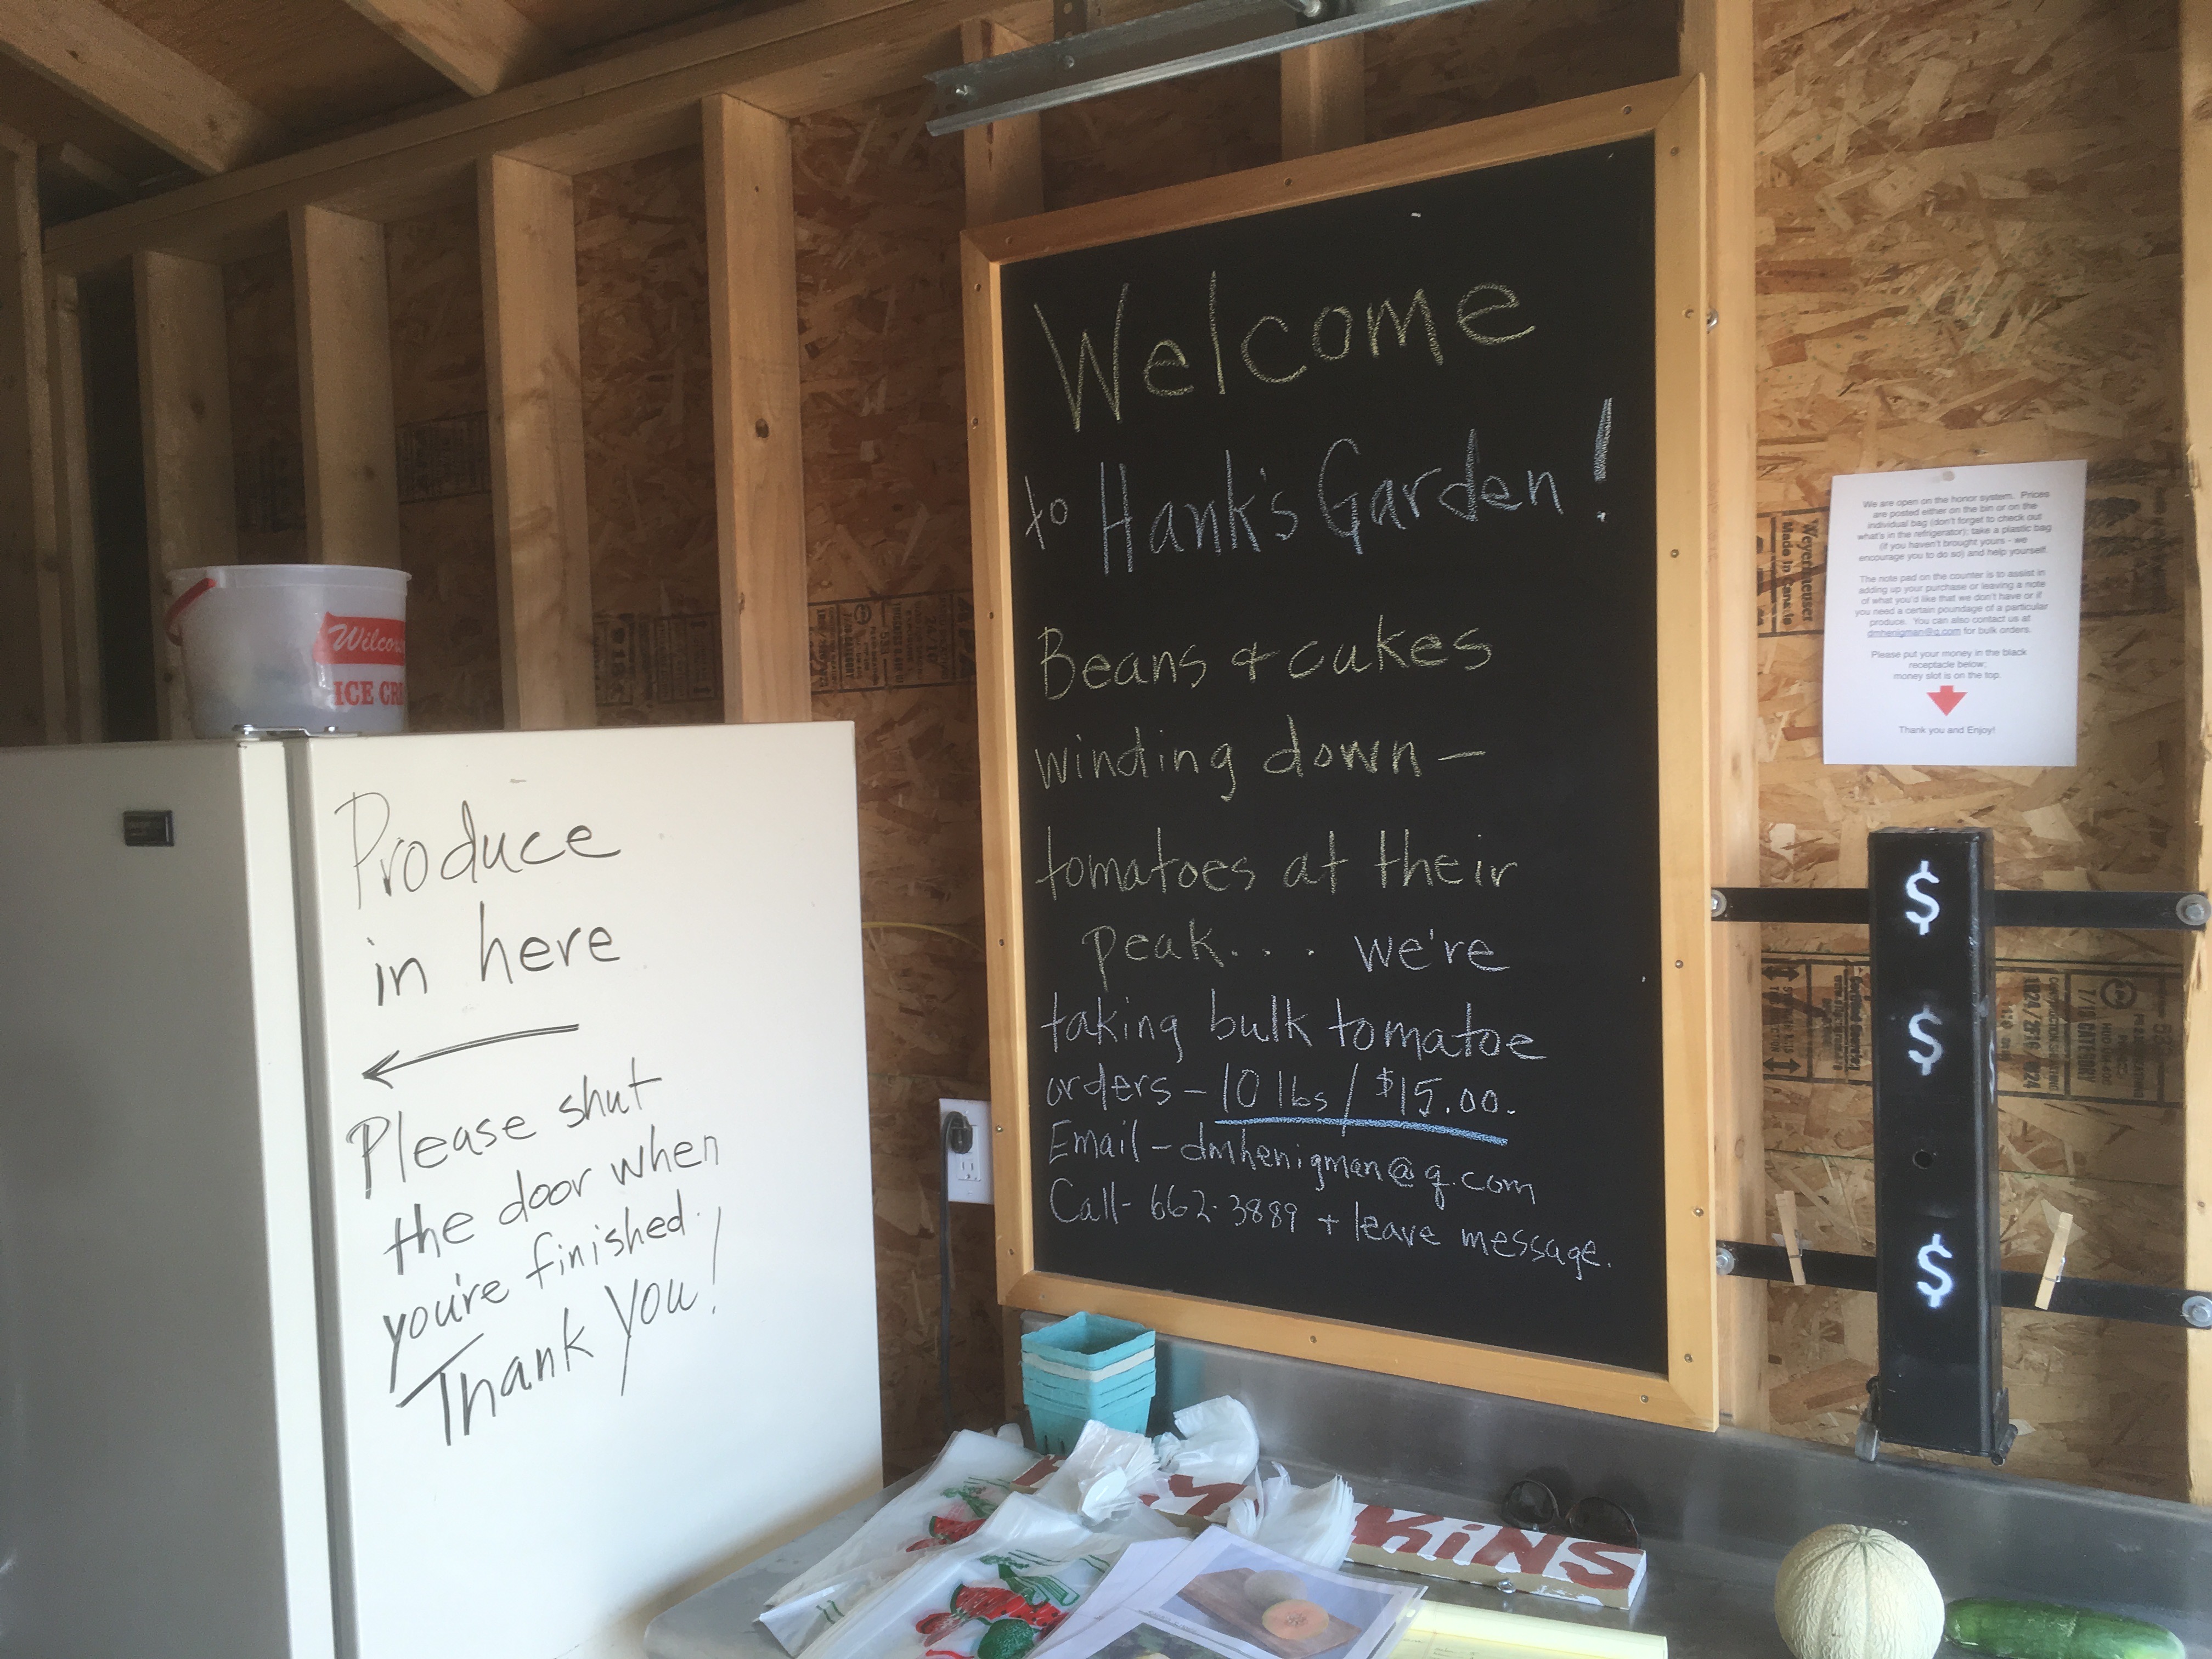 Welcome
to Hank's Garden!
Beans & cukes
winding down —
tomatoes at their
peak.... we're
taking bulk tomatoe
orders — 10 lbs / $15.00.
Email - dmhenigman@q.com
Call - 662-3889 + leave message.
Produce
in here
Please shut
the door when
you're finished.
Thank You!
Welcom
ICE CRE
We are open on the honor system. Prices
are posted either on the bin or on the
individual bag (don't forget to check out
what's in the refrigerator); take a plastic bag
(if you haven't brought yours - we
encourage you to do so) and help yourself.
The note pad on the counter is to assist in
adding up your purchase or leaving a note
of what you'd like that we don't have or if
you need a certain poundage of a particular
produce. You can also contact us at
dmhenigman@q.com for bulk orders.
Please put your money in the black
receptacle below;
money slot is on the top.
Thank you and Enjoy!
Weyerhaeuser
Made In Canada
$
$
$
KiNS